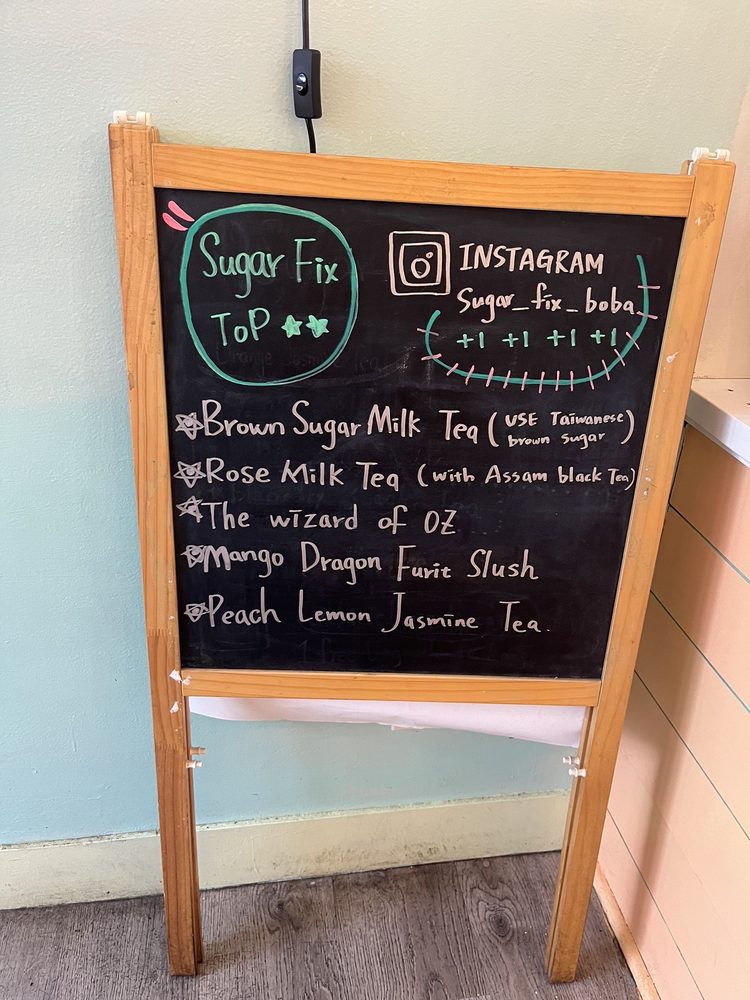 Sugar Fix
ToP
INSTAGRAM
Sugar_fix_boba
+1 +1 +1 +1
Brown Sugar Milk Tea (USE Taiwanese brown sugar)
Rose Milk Tea (with Assam black Tea)
The wizard of OZ
Mango Dragon Furit Slush
Peach Lemon Jasmine Tea.